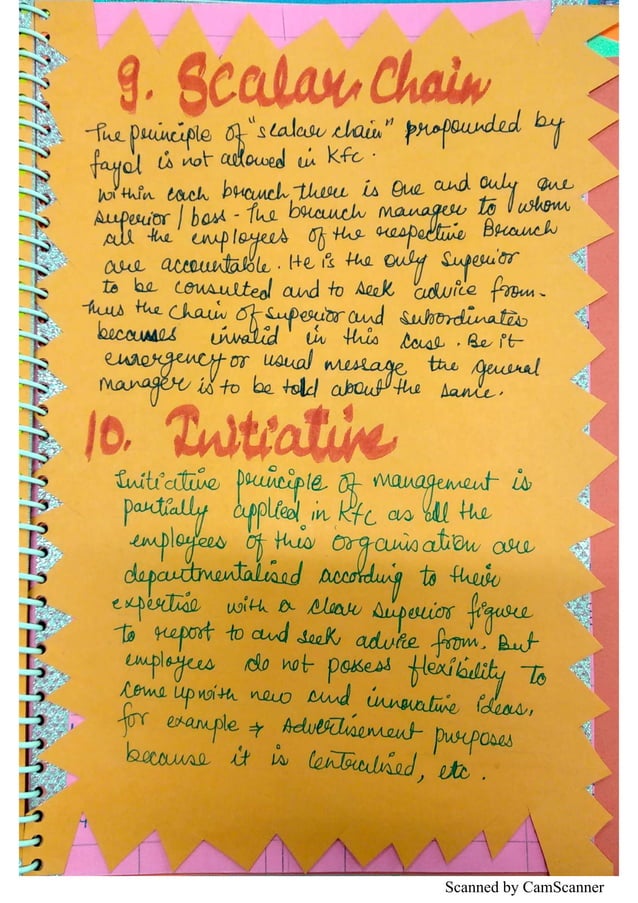 9. Scalar Chain
The principle of "scalar chain" propounded by
fayol is not allowed in Kfc.
Within each branch there is one and only one
superior / boss - The branch manager to whom
all the employees of the respective Branch
are accountable. He is the only superior
to be consulted and to seek advice from.
Thus the chain of superior and subordinates
becauses invalid in this case. Be it
emergency or usual message the general
manager is to be told about the same.
10. Initiative
Initiative principle of management is
partially applied in Kfc as all the
employees of this organisation are
departmentalised according to their
expertise with a clear superior figure
to report to and seek advice from. But
employees do not possess flexibility to
come up with new and innovative ideas,
for example → Advertisement purposes
because it is centralised, etc.
Scanned by CamScanner